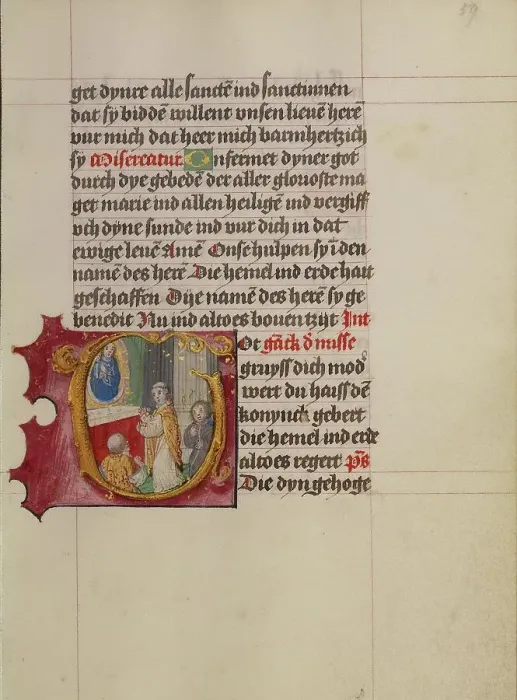 59
get dynre alle sanctē ind sanctinnen
dat sy biddē willent vnsen lieuē herē
vur mich dat heer mich barmhertzich
sy Misereatur. Onfermet dyner got
durch dye gebedē der aller glorioste ma
get marie ind allen heiligē ind vergiff
vch dyne sunde ind vur dich in dat
ewige leuē Amē Onse hulpen sy ī den
namē des herē Die hemel ind erde hait
geschaffen Dije namē des herē sy ge
benedit Nu ind altoes bouen tzijt Int
Ot gāck d' misse
gruyss dich mod'
wert du haist dē
konynck gebert
die hemel ind erde
altoes regert p̄s
Die dyn gehoge